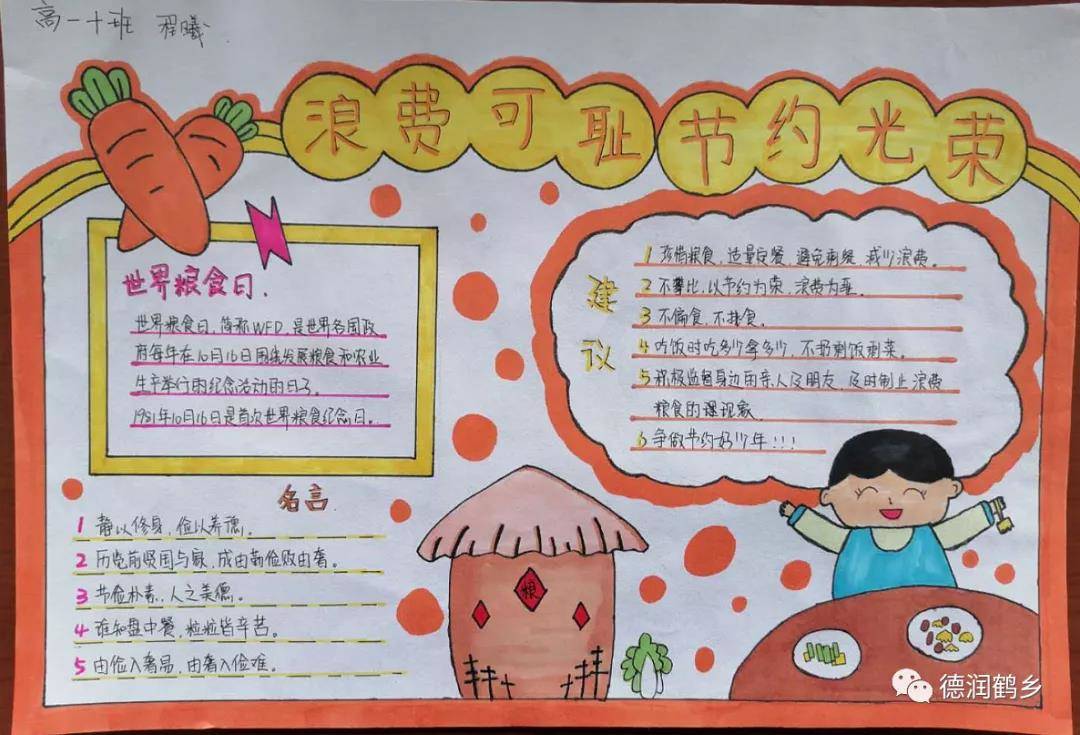 高一十班 程曦
浪费可耻 节约光荣
世界粮食日.
世界粮食日,简称WFD,是世界各国政
府每年在10月16日围绕发展粮食和农业
生产举行的纪念活动的日子。
1981年10月16日是首次世界粮食纪念日。
建议
1 珍惜粮食,适量定餐,避免剩餐,减少浪费。
2 不攀比,以节约为荣,浪费为耻。
3 不偏食,不挑食。
4 吃饭时吃多少拿多少,不扔剩饭剩菜。
5 积极监督身边的亲人及朋友 及时制止浪费
粮食的现象
6 争做节约好少年!!!
名言
1 静以修身,俭以养德。
2 历览前贤国与家,成由勤俭败由奢。
3 节俭朴素,人之美德。
4 谁知盘中餐,粒粒皆辛苦。
5 由俭入奢易,由奢入俭难。
粮
德润鹤乡